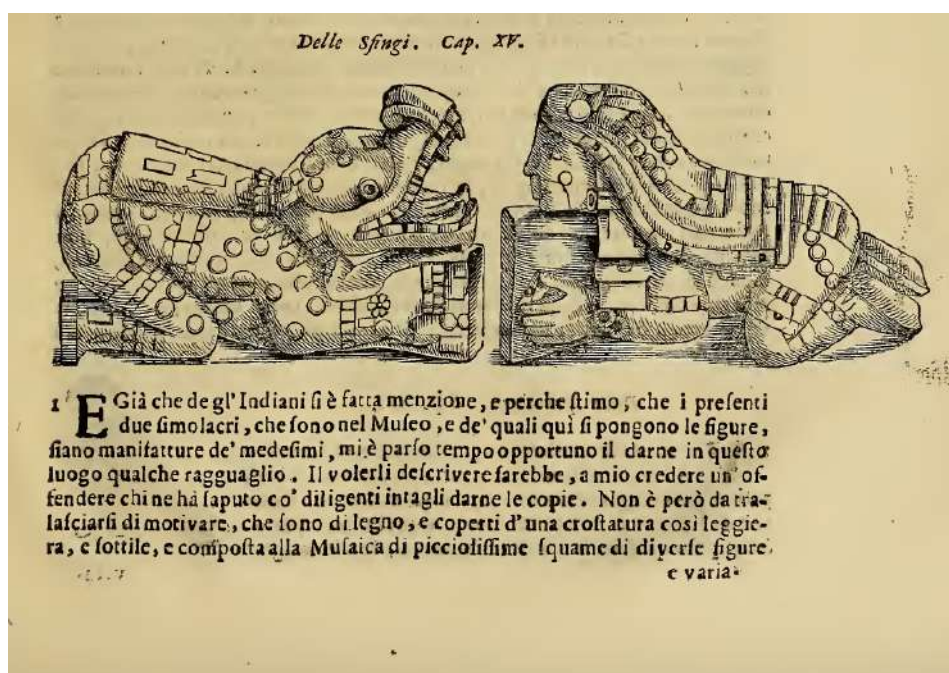 Delle Sfingi. Cap. XV.
1 EGià che degl' Indiani ſi è fatta menzione, e perche ſtimo, che i preſenti
due ſimolacri, che ſono nel Muſeo, e de' quali quì ſi pongono le figure,
ſiano manifatture de' medeſimi, mi è parſo tempo opportuno il darne in queſto
luogo qualche ragguaglio. Il volerli deſcrivere ſarebbe, a mio credere un' of-
fendere chi ne hà ſaputo co' diligenti intagli darne le copie. Non è però da tra-
laſciarſi di motivare, che ſono di legno, e coperti d'una croſtatura così leggie-
ra, e ſottile, e compoſta alla Muſaica di piccioliſſime ſquame di diverſe figure
e varia-